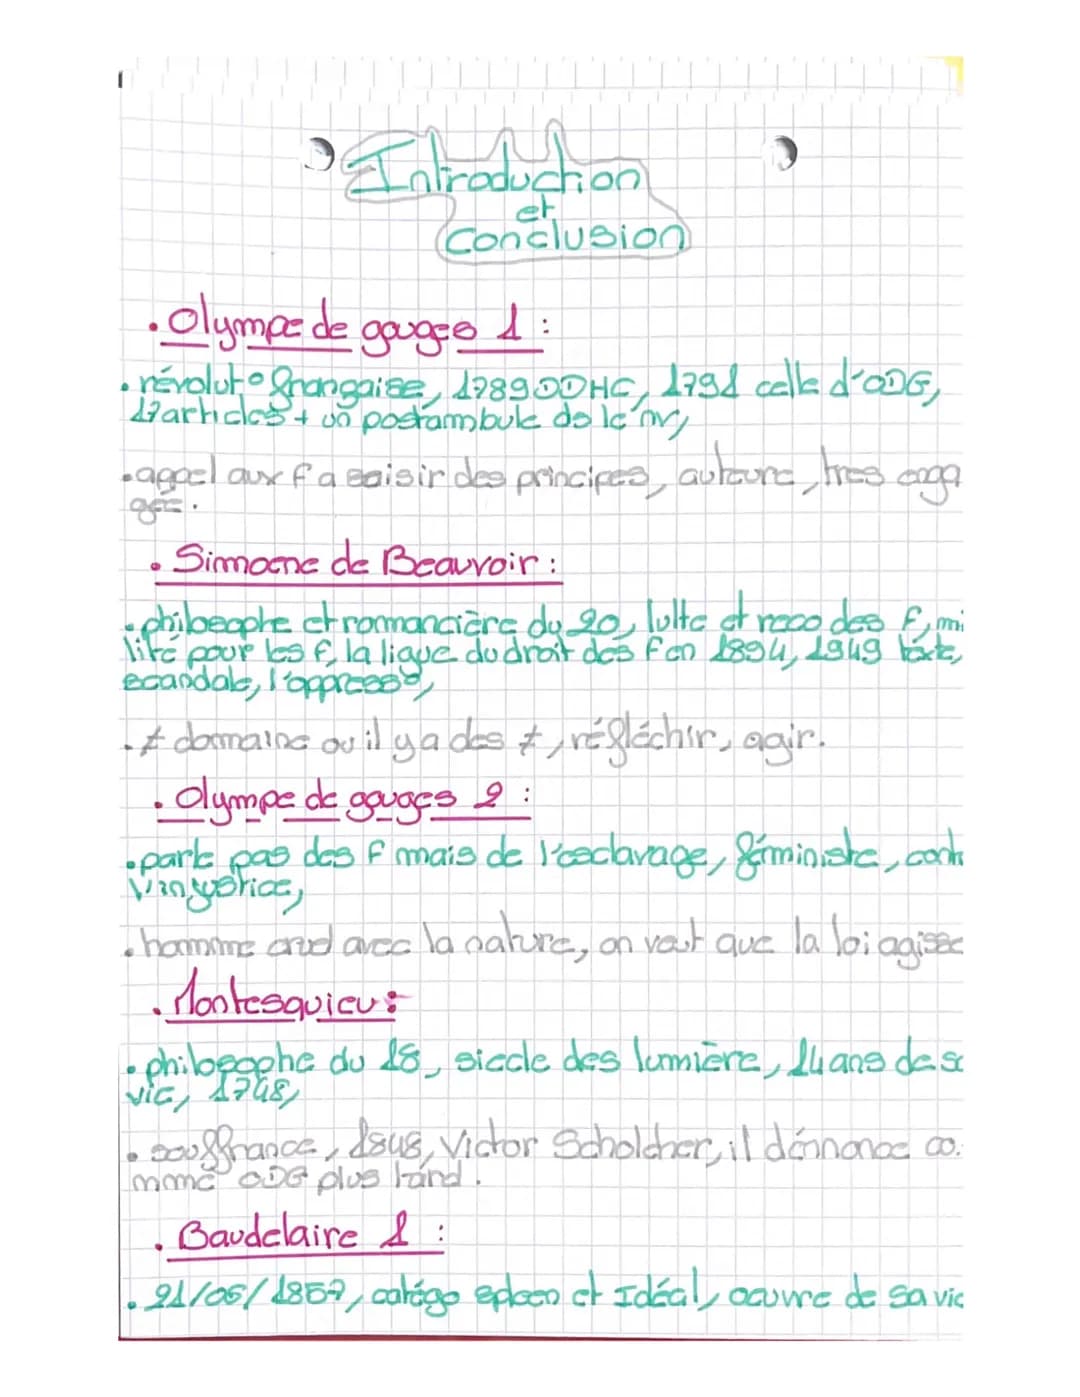 Introduction
et
conclusion
. Olympe de gouges 1 :
. révolut° française, 1789 DDHC, 1791 celle d'ODG,
17 articles + un postambule de le nv,
. appel aux f a saisir des principes, auteure, tres enga
gée.
. Simoene de Beauvoir :
. philosophe et romancière du 20, lutte et reco des f, mi
lité pour les f, la ligue du droit des f en 1894, 1949 texte,
scandale, l'oppress°,
. ≠ domaine ou il y a des ≠, réfléchir, agir.
. Olympe de gouges 2 :
. parle pas des f mais de l'esclavage, féministe, contr
l'injustice,
. homme cruel avec la nature, on veut que la loi agisse
. Montesquieu :
. philosophe du 18, siecle des lumière, 14 ans de sa
vie, 1748,
. souffrance, 1848, Victor Scholcher, il dénnonce co.
mme ODG plus tard.
. Baudelaire 1 :
. 21/06/1857, catégo spleen et Idéal, oeuvre de sa vie